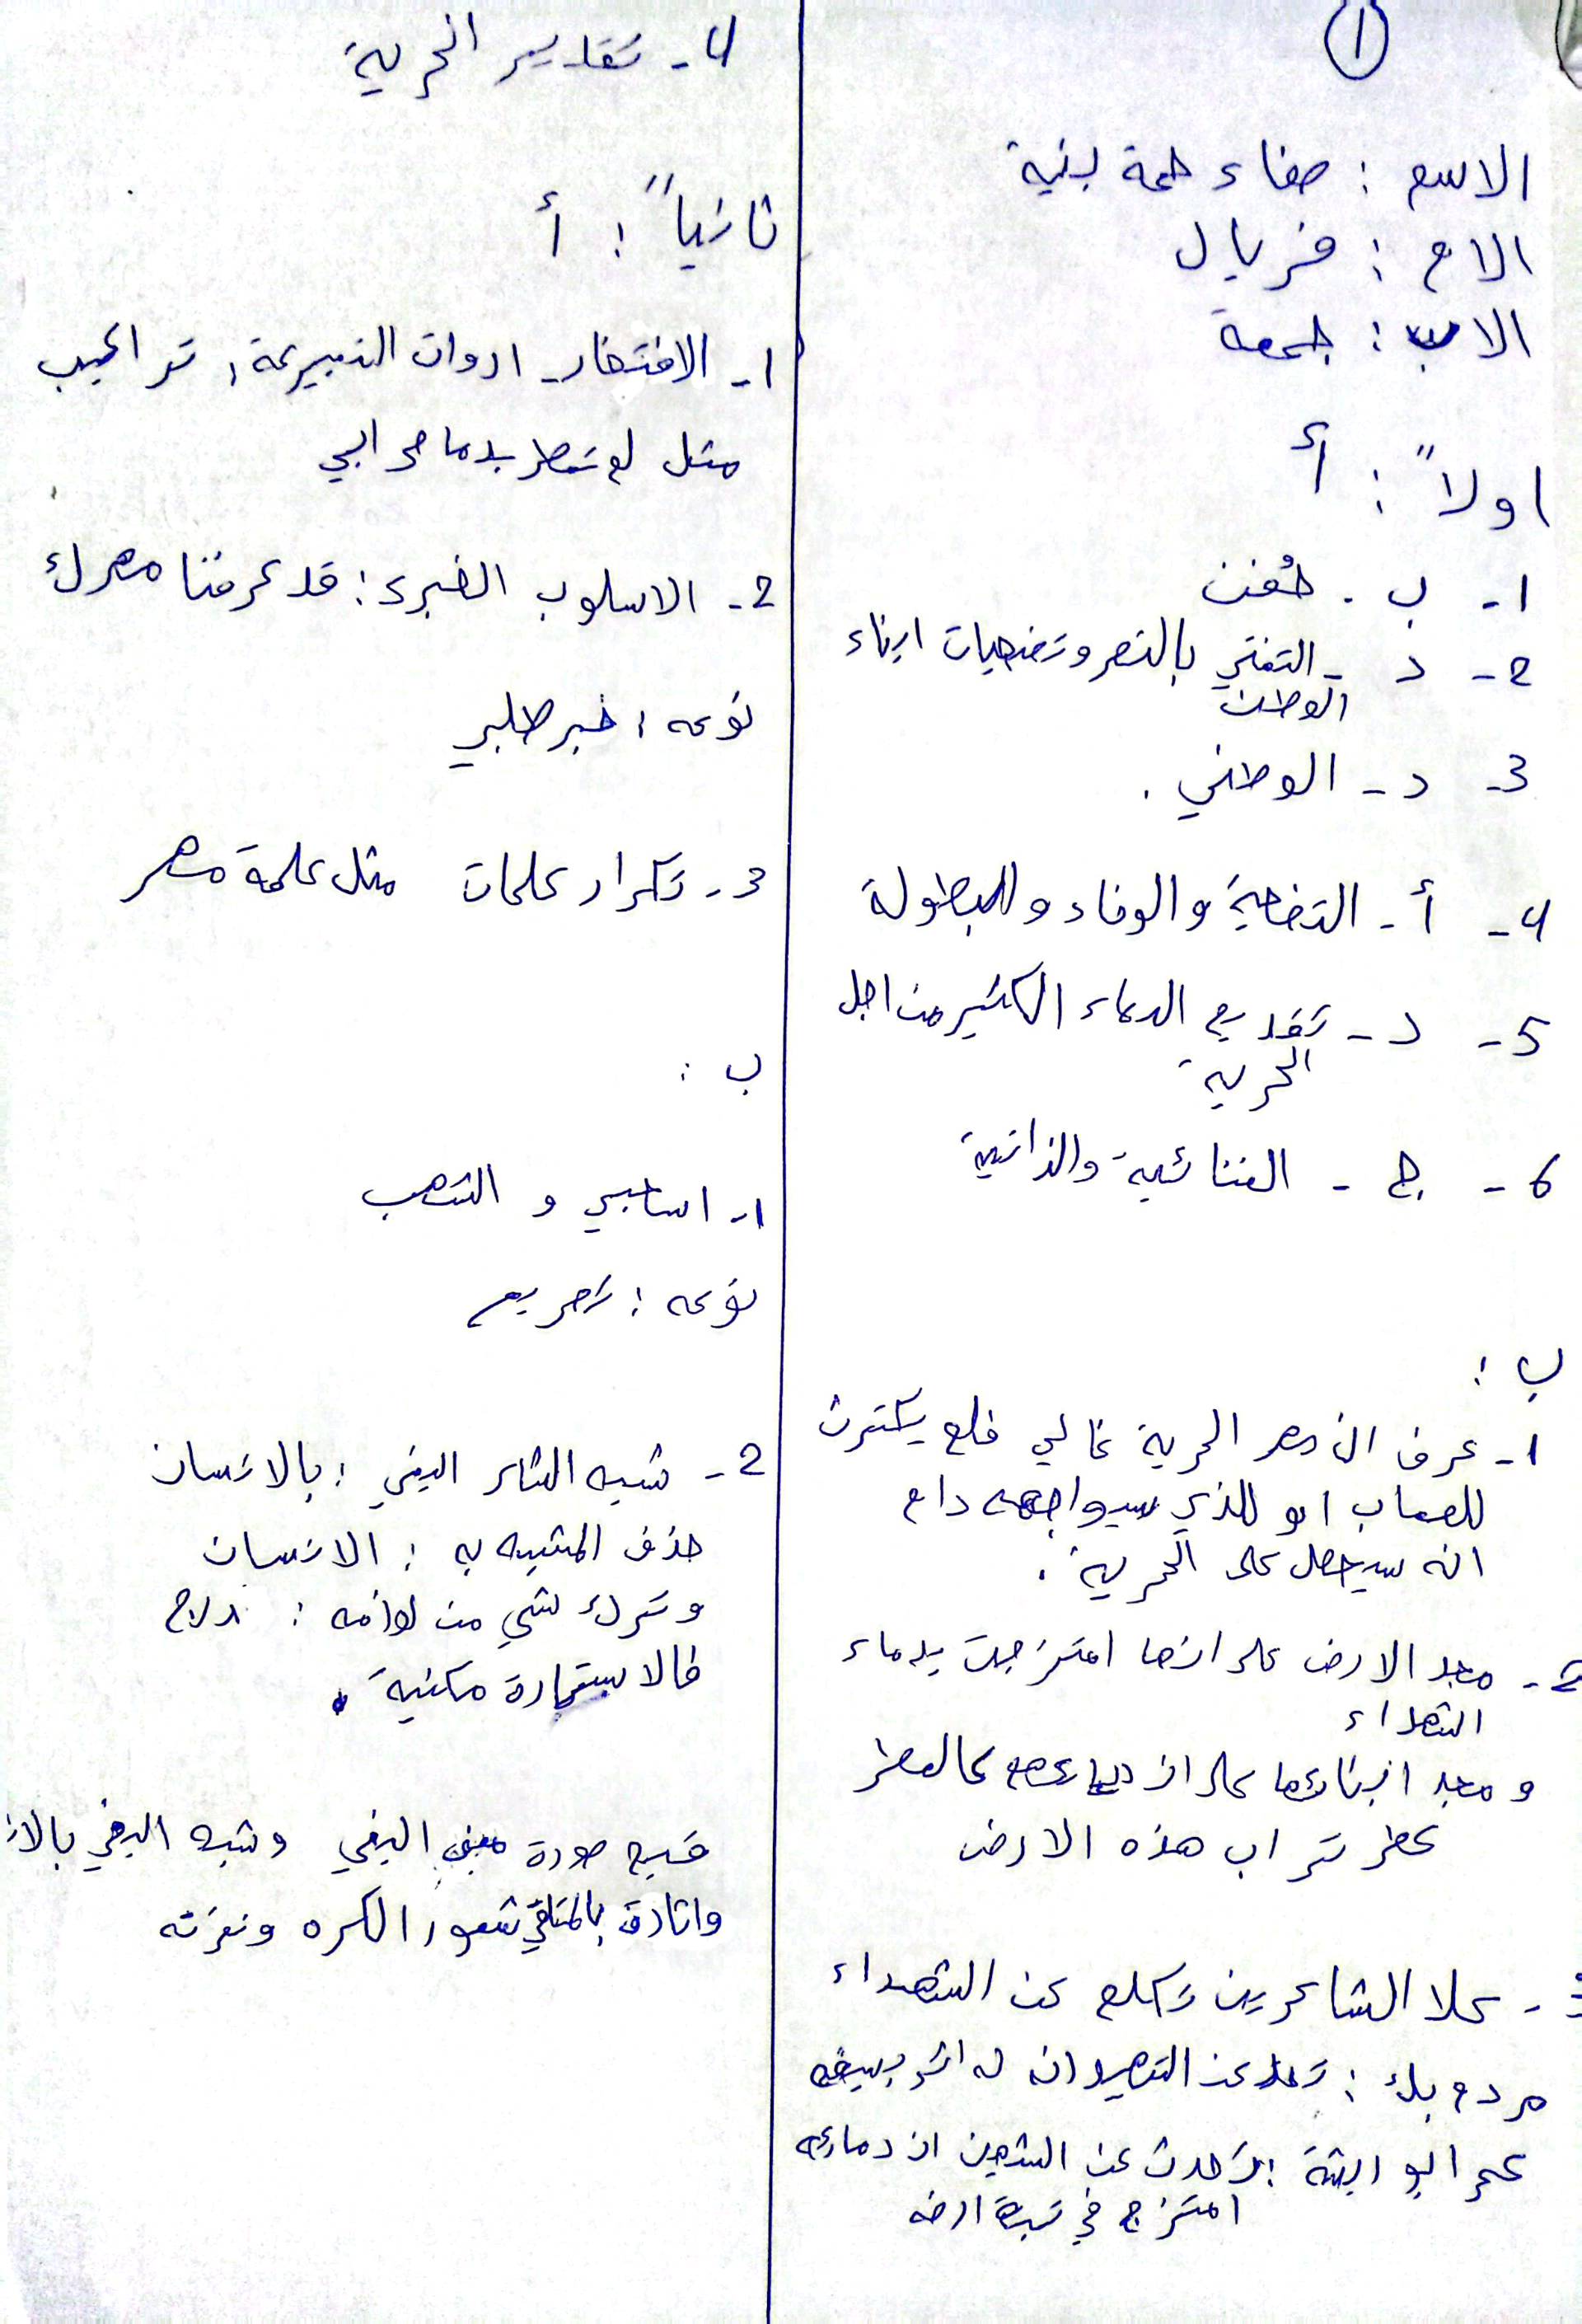 ١
الاسم : صفاء طعمة بنية
الام : فريال
الاب : جمعة
اولاً : أ
1- ب . طُعن
2- د - التغني بالنصر وتضحيات ابناء
الوطن
3- د - الوطني .
4- أ - التضحية والوفاء والبطولة
5- د - تقديم الدماء الكثير من اجل
الحرية
6- ج - الغنائية والذاتية
ب :
1- عرف ان مهر الحرية غالي فلم يكترث
للصعاب او للذي سيواجهه دام
انه سيحصل على الحرية .
2- مجد الارض على انها امتزجت بدماء
الشهداء
و مجد ابنائها على ان دمائهم كالعطر
عطر تراب هذه الارض
3- كلا الشاعرين تكلم عن الشهداء
مردم بك : تكلم عن الشهيد انه له اثر
عمر ابو ريشة : تحدث عن الشهيد ان دمائه
امتزج في تربة ارضه
4- تقدير الحرية
ثانياً : أ
1- الافتخار - ادوات التعبيرية : تراكيب
مثل لم تعطر بدما حر ابي
2- الاسلوب الخبري : قد عرفنا مهرك
نوعه : خبر طلبي
3- تكرار كلمات مثل كلمة مهر
ب :
1- اساسي و الشهب
نوعه : تصريع
2- شبه الثائر البغي : بالانسان
حذف المشبه به : الانسان
وترك شي من لوازمه :
فالاستعارة مكنية .
قبح صورة البغي وشبه البغي بالان
واثارة بالمتلقي شعور الكره ونفرته